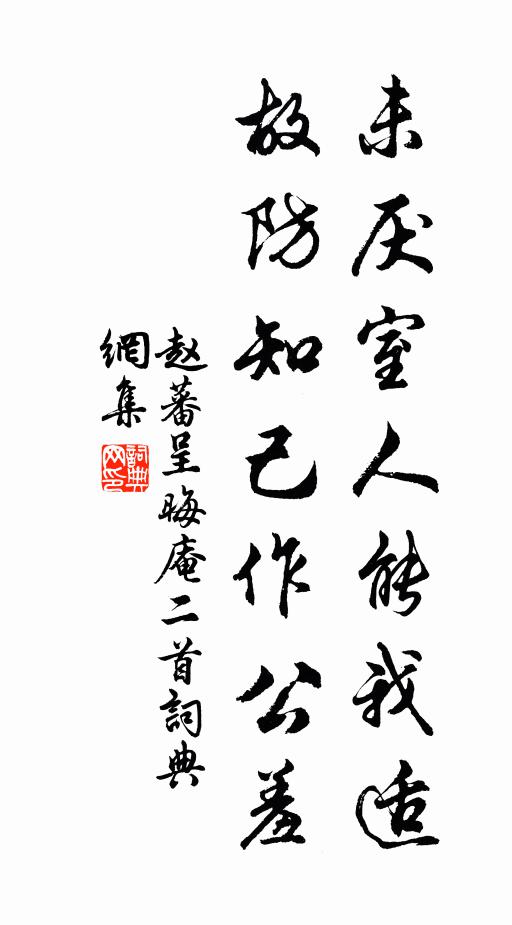 未厌室人能我适
故防知己作公羞
赵蕃呈晦庵二首詞典
網集
詞典网印